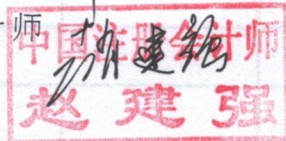 师
中国注册会计师
赵建强
赵建强